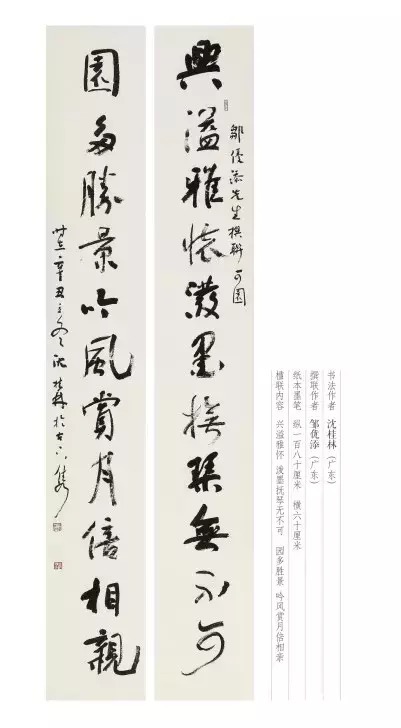 興溢雅懷潑墨撫琴無不可
鄒優添先生撰聯可園
園多勝景吟風賞月倍相親
辛丑之冬沈桂林於
书法作者 沈桂林（广东）
撰联作者 邹优添（广东）
纸本墨笔 纵一百八十厘米 横六十厘米
楹联内容 兴溢雅怀 泼墨抚琴无不可 园多胜景 吟风赏月倍相亲